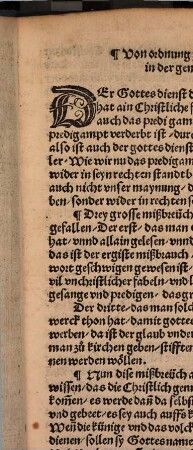 ¶ Von ordnung
in der gem
DEr Gottes dienst d
hat ain Christliche
auch das predi gam
predigampt verderbt ist
also ist auch der gottes dienst
ler • Wie wir nu das predigam
wider in seyn rechten standt b
auch nicht vnser maynung • d
ben • sonder wider in rechten s
¶ Drey grosse mißbreüch
gefallen • Der erst • das man
hat • vnnd allain gelesen • vnn
das ist der ergiste mißbrauch
wort geschwigen gewesen ist • v
vil vnchristlicher fabeln • vnd l
gesange vnd predigen • das gr
Der dritte • das man sol
werck thon hat • damit gottes
werben • da ist der glaub vnder
man zů kirchen geben • stifften
nen werden wöllen.
¶ Nun dise mißbreüch a
wissen • das die Christlich gem
kom̃en • es werde dañ da selbst
vnd gebeet • es sey auch auffs k
Weñ die künige vnd das volck
dienen • sollen sy Gottes name